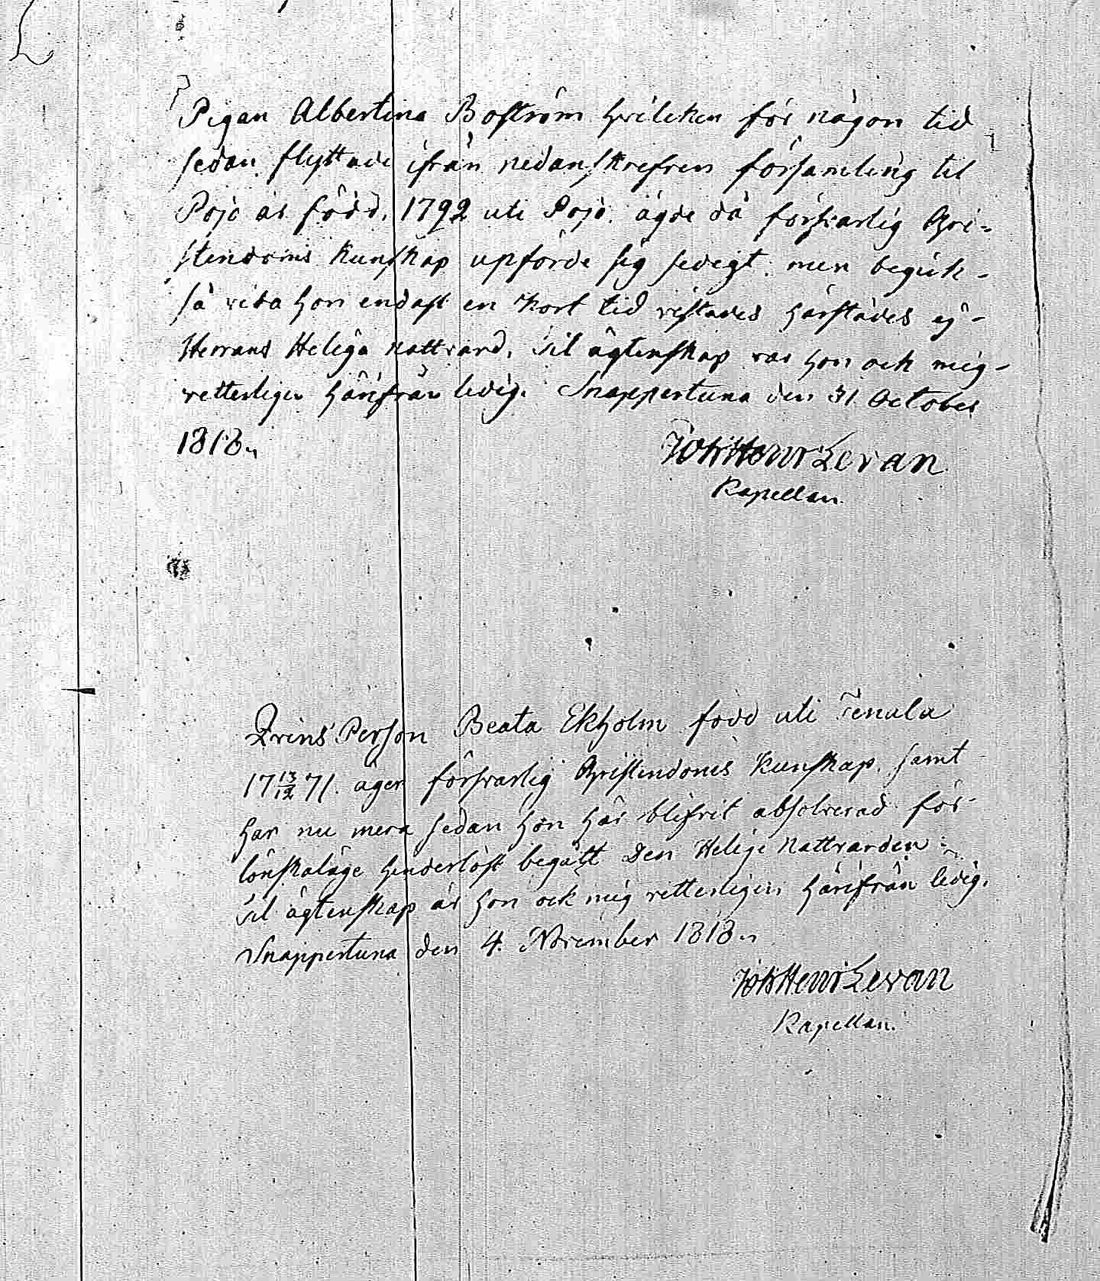 Pigan Albertina Boström hvilcken för någon tid
sedan flyttade ifrån nedanskrefven församling til
Pojo är född 1792 uti Pojo. ägde då försvarlig Chri-
stendoms kunskap upförde sig sedigt, men begick -
så vida hon endast en kort tid vistades härstädes ej -
Herrans Heliga Nattvard. Til ägtenskap var hon ock mig -
vetterligen härifrån ledig. Snappertuna den 31 October
1818.
Joh Henr Levan
Kapellan.
Qvins Person Beata Ekholm född uti Tenala
17 13/12 71. äger försvarlig Christendoms kunskap, samt
har nu mera sedan hon här blifvit absolverad för
lönskaläge hinderlöst begått Den Helige Nattvarden
Til ägtenskap är hon ock mig vetterligen härifrån ledig.
Snappertuna den 4. November 1818.
Joh Henr Levan
Kapellan.